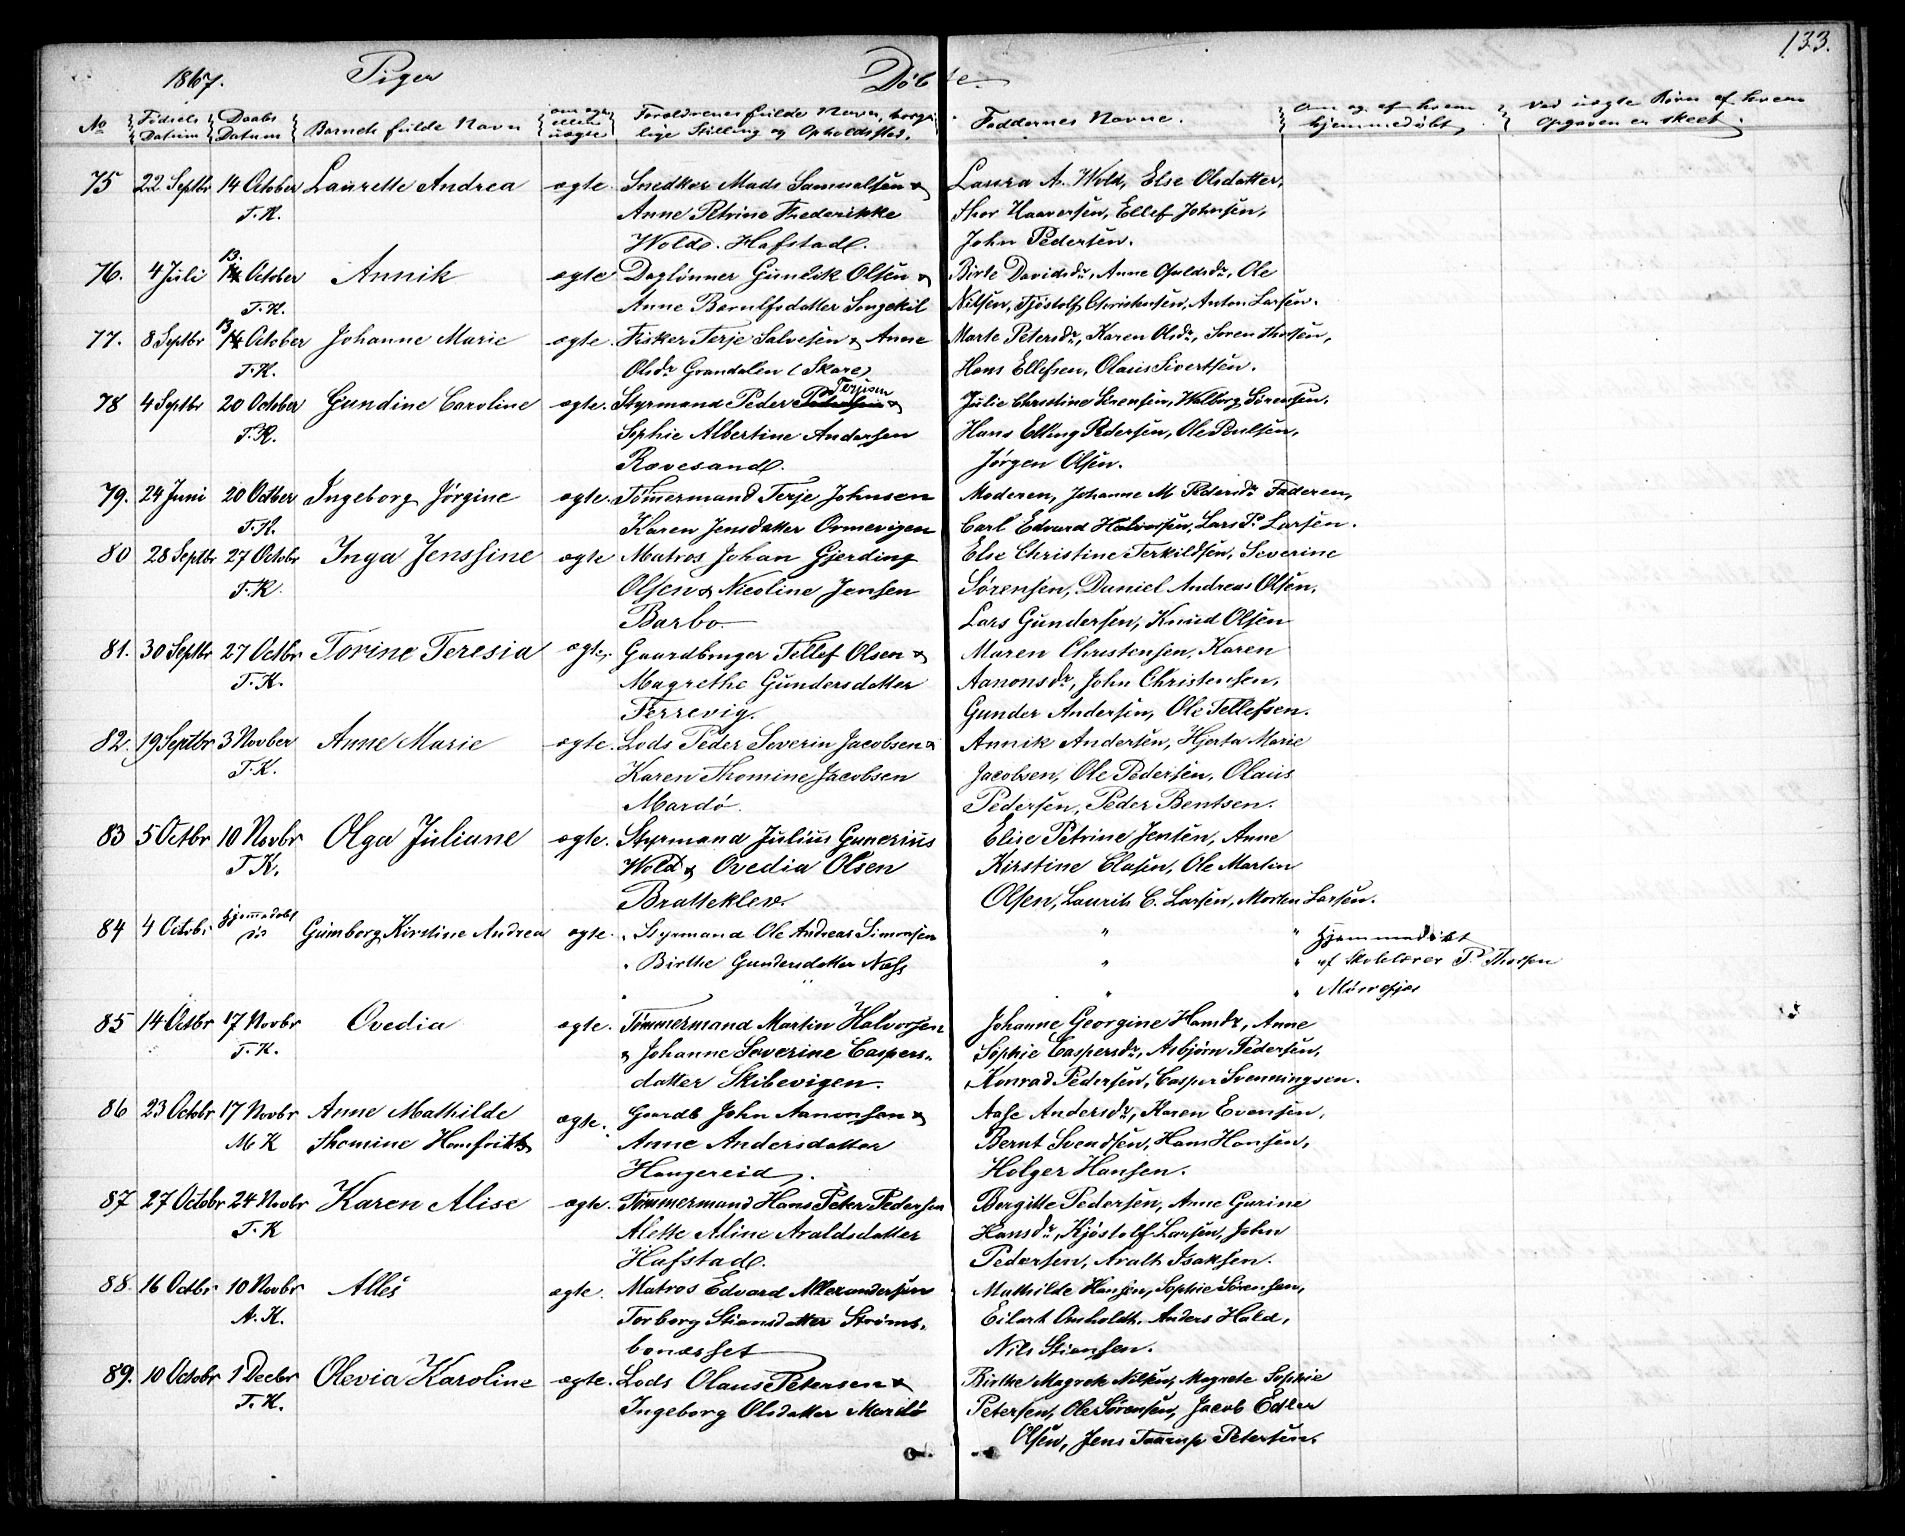 133.
1867. Piger Døbte.
No Fødsels Datum Daabs Datum Barnets fulde Navn om ægte eller uægte Forældrenes fulde Navn, borgerlige Stilling og Opholdssted. Faddernes Navne. Om og af hvem hjemmedøbt Ved uægte Børn af hvem Opgaven er skeet.
75 22 Septbr 14 October Laurette Andrea ægte. Snedker Mads Samuelsen & Laura A. Wold, Else Olsdatter,
T.K. Anne Petrine Frederikke Thor Haaversen, Ellef Johnsen,
Wold. Hafstad. John Pedersen.
76. 4 Juli 13. October Annik ægte Daglønner Gunlik Olsen & Birte Davidsdr, Anne Osuldsdr, Ole
T.K. Anne Bernlfsdatter Songekil Nilsen, Tjøstolf Christensen, Anton Larsen.
77. 8 Septbr 13 October Johanne Marie ægte. Fisker Terje Salvesen & Anne Marte Petersdr, Karen Olsdr, Søren
T.K. Olsdr Grandalen (Skare) Hans Ellefsen, Olaus Sivertsen.
78 4 Septbr 20 October Gundine Caroline ægte. Styrmand Peder Terjesen & Julie Christine Sørensen, Walborg Sørensen,
T.K. Sophie Albertine Andersen Hans Elling Pedersen, Ole Poulsen,
Rævesand. Jørgen Olsen.
79. 24 Juni 20 Octber Ingeborg Jørgine ægte. Tømmermand Terje Johnsen Moderen, Johanne M Pedersdr Faderen,
T.K. Karen Jensdatter Ormevigen Carl Edvard Halvorsen, Lars P. Larsen.
80 28 Septbr 27 Octobr Inga Jenssine ægte Matros Johan Gjerding Else Christine Terkildsen, Severine
T.K. Olsen & Nicoline Jensen Sørensen, Daniel Andreas Olsen,
Barbo. Lars Gundersen, Knud Olsen
81. 30 Septbr 27 Octbr Torine Teresia ægte. Gaardbruger Tellef Olsen & Maren Christensen, Karen
T.K. Magrethe Gundersdatter Aanonsdr, John Christensen,
Ferrevig. Gunder Andersen, Ole Tellefsen.
82. 19 Septbr 3 Novber Anne Marie ægte. Lods Peder Severin Jacobsen & Annik Andersen, Hjerta Marie
T.K. Karen Thomine Jacobsen Jacobsen, Ole Pedersen, Olaus
Mardø. Pedersen, Peder Bentsen.
83 5 Octbr 10 Novbr Olga Juliane ægte. Styrmand Julius Gunerius Elise Petrine Jensen, Anne
T K. Wold & Ovedia Olsen Kirstine Clasen, Ole Martin
Bratteklev. Olsen, Laurits C. Larsen, Morten Larsen.
84 4 Octobr hjemmedøbt Gunborg Kirstine Andrea ægte. Styrmand Ole Andreas Simonsen " " Hjemmedøbt
Birthe Gundersdatter Næss " " af Skolelærer P. Thorsen
" " Mørrefjær
85 14 Octbr 17 Novbr Ovedia ægte. Tømmermand Martin Halvorsen Johanne Georgine Hansdr, Anne
T.K. & Johanne Severine Caspers- Sophie Caspersdr, Asbjørn Pedersen,
datter Skibevigen. Konrad Pedersen, Casper Svenningsen.
86 23 Octobr 17 Novbr Anne Mathilde ægte. Gaardb John Aanonsen & Aase Andersdr, Karen Evensen,
M K Thomine Anne Andersdatter Bernt Svendsen, Hans Hansen,
Hangereid. Holger Hansen.
87 27 Octobr 24 Novbr Karen Alise ægte. Tømmermand Hans Peter Pedersen Bergitte Pedersen, Anne Gurine
T.K Alette Aline Araldsdatter Hansdr, Kjøstolf Larsen, John
Hafstad. Pedersen, Aralt Isaksen.
88. 16 Octbr 10 Novbr Alles ægte. Matros Edvard Allexandersen Mathilde Hansen, Sophie Sørensen,
A.K. Torborg Stiansdatter Strøms- Eilert Amholdt, Anders Hald,
bonæsset Nils Stiansen.
89. 10 Octobr 1 Decbr Olevia Karoline ægte. Lods Olaus Petersen & Birthe Magrete Nilsen, Magrete Sophie
T.K. Ingeborg Olsdatter Mardø Petersen, Ole Sørensen, Jacob Edler
Olsen, Jens Taarup Petersen.